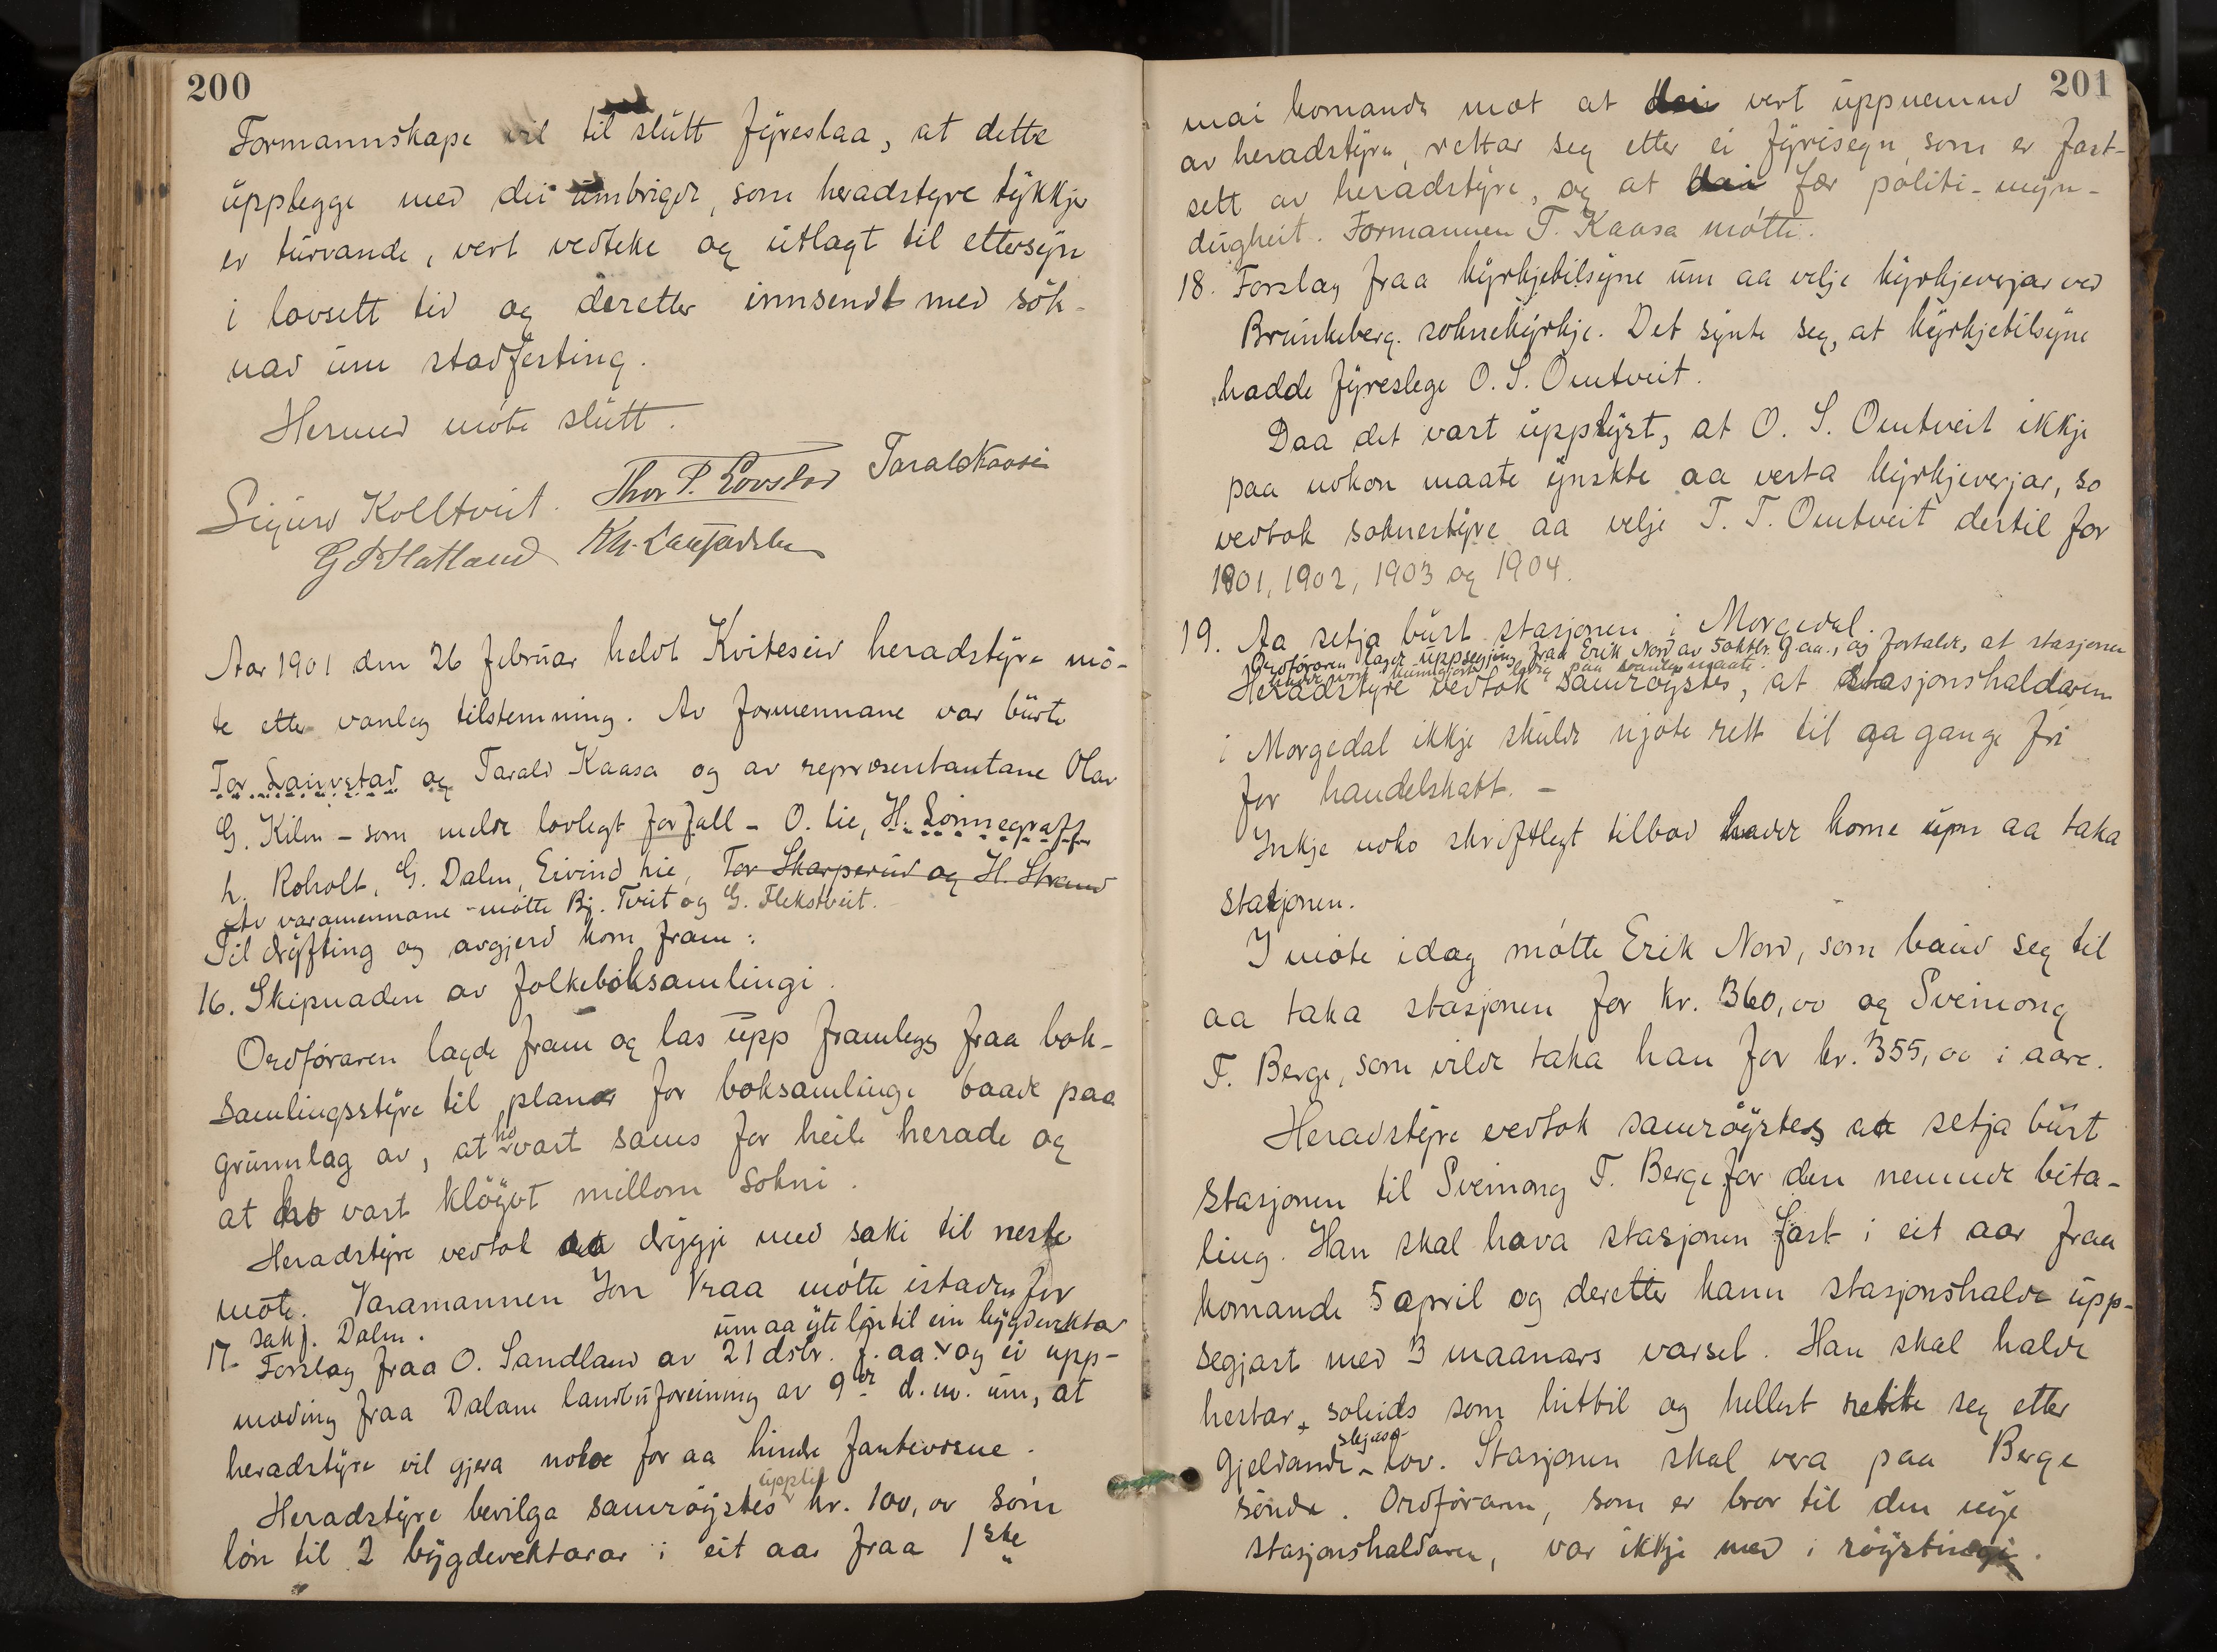 200
Formannskape vil til slutt fyreslaa, at dette
upplegge med dei umbrigde, som heradstyre tykkje
er turvande, vert vedteke og utlagt til ettersyn
i lovsett tid og deretter innsendt med sök-
nad um stadfesting.
Hermed möte slutt.
Sigurd Kolltveit. Thor P. Lovstad Tarald Kaasa
G S Hatland
Aar 1901 den 26 februar heldt Kviteseid heradstyre mö-
te etter vanleg tilstemning. Av formennane var burte
Tor Lauvstad og Tarald Kaasa og av representantane Olav
G. Kilen – som melde lovlegt forfall – O. Lie, H. Lönnegraff
h. Roholt, G. Dalen, Eivind Lie, Tor Skarperud og H. Strand
Av varamennane mötte Bj. Tveit og G. Flekstveit.
Til dryfting og avgjerd kom fram:
16. Skipnaden av folkeboksamlingi.
Ordföraren lagde fram og las upp framlegg fraa bok-
samlingsstyre til planar for boksamlingi baade paa
grunnlag av, at ho vart sams for heile herade og
at ho vart klöyvt millom sokni.
Heradstyre vedtok aa drygji med saki til neste
möte. Varamannen Jon Vraa mötte istaden for
sakf. Dalen.
um aa yte lön til ein bygdevektar
17. Forslag fraa O. Sandland av 21 dsbr. f. aa. og ei upp-
moding fraa Dalane landbuforeining av 9de d. m. um, at
heradstyre vil gjera noko for aa hindre fantevosne.
upptil
Heradstyre bevilga samröystes kr. 100,00 som
lön til 2 bygdevektarar i eit aar fraa 1ste
201
mai komande mot at dei vert uppnemnd
av heradstyre, rettar seg etter ei fyrisegn, som er fast-
sett av heradstyre, og at dei fær politi-myn-
dugheit. Formannen T. Kaasa mötte.
18. Forslag fraa kyrkjetilsyne um aa velje kyrkjeverjar ved
Brunkeberg soknekyrkje. Det synte seg, at kyrkjetilsyne
hadde fyreslege O. S. Omtveit.
Daa det vart upplyst, at O. S. Omtveit ikkje
paa nokon maate ynskte aa verta kyrkjeverjar, so
vedtok soknestyre aa velje T. T. Omtveit dertil for
1901, 1902, 1903 og 1904.
19. Aa setja burt stasjonen i Morgedal.
Ordföraren lagde uppsegjing fraa Erik Nord av 5 oktbr. f. aa., og fortalde, at stasjonen
hadde vore kunngjort ledig paa vanleg maate.
Heradstyre vedtok samröystes, at stasjonshaldaren
i Morgedal ikkje skulde njote rett til aa gange fri
for handelskatt. –
Inkje noko skriftlegt tilbod hadde kome upn aa taka
stasjonen.
I möte idag mötte Erik Nord, som baud seg til
aa taka stasjonen for kr. 360,00 og Sveinong
T. Berge, som vilde taka han for kr. 355,00 i aare.
Heradstyre vedtok samröystes aa setja burt
stasjonen til Sveinong T. Berge for den nemnde beta-
ling. Han skal hava stasjonen fast i eit aar fraa
komande 5 april og deretter kann stasjonshalde upp-
segjast med 3 maanars varsel. Han skal halde
hestar soleids som hittil og hellest rette seg etter
skjuss-
gjeldande lov. Stasjonen skal vera paa Berge
söndre. Ordföraren, som er bror til den nye
stasjonshaldaren, var ikkje med i röystingi.